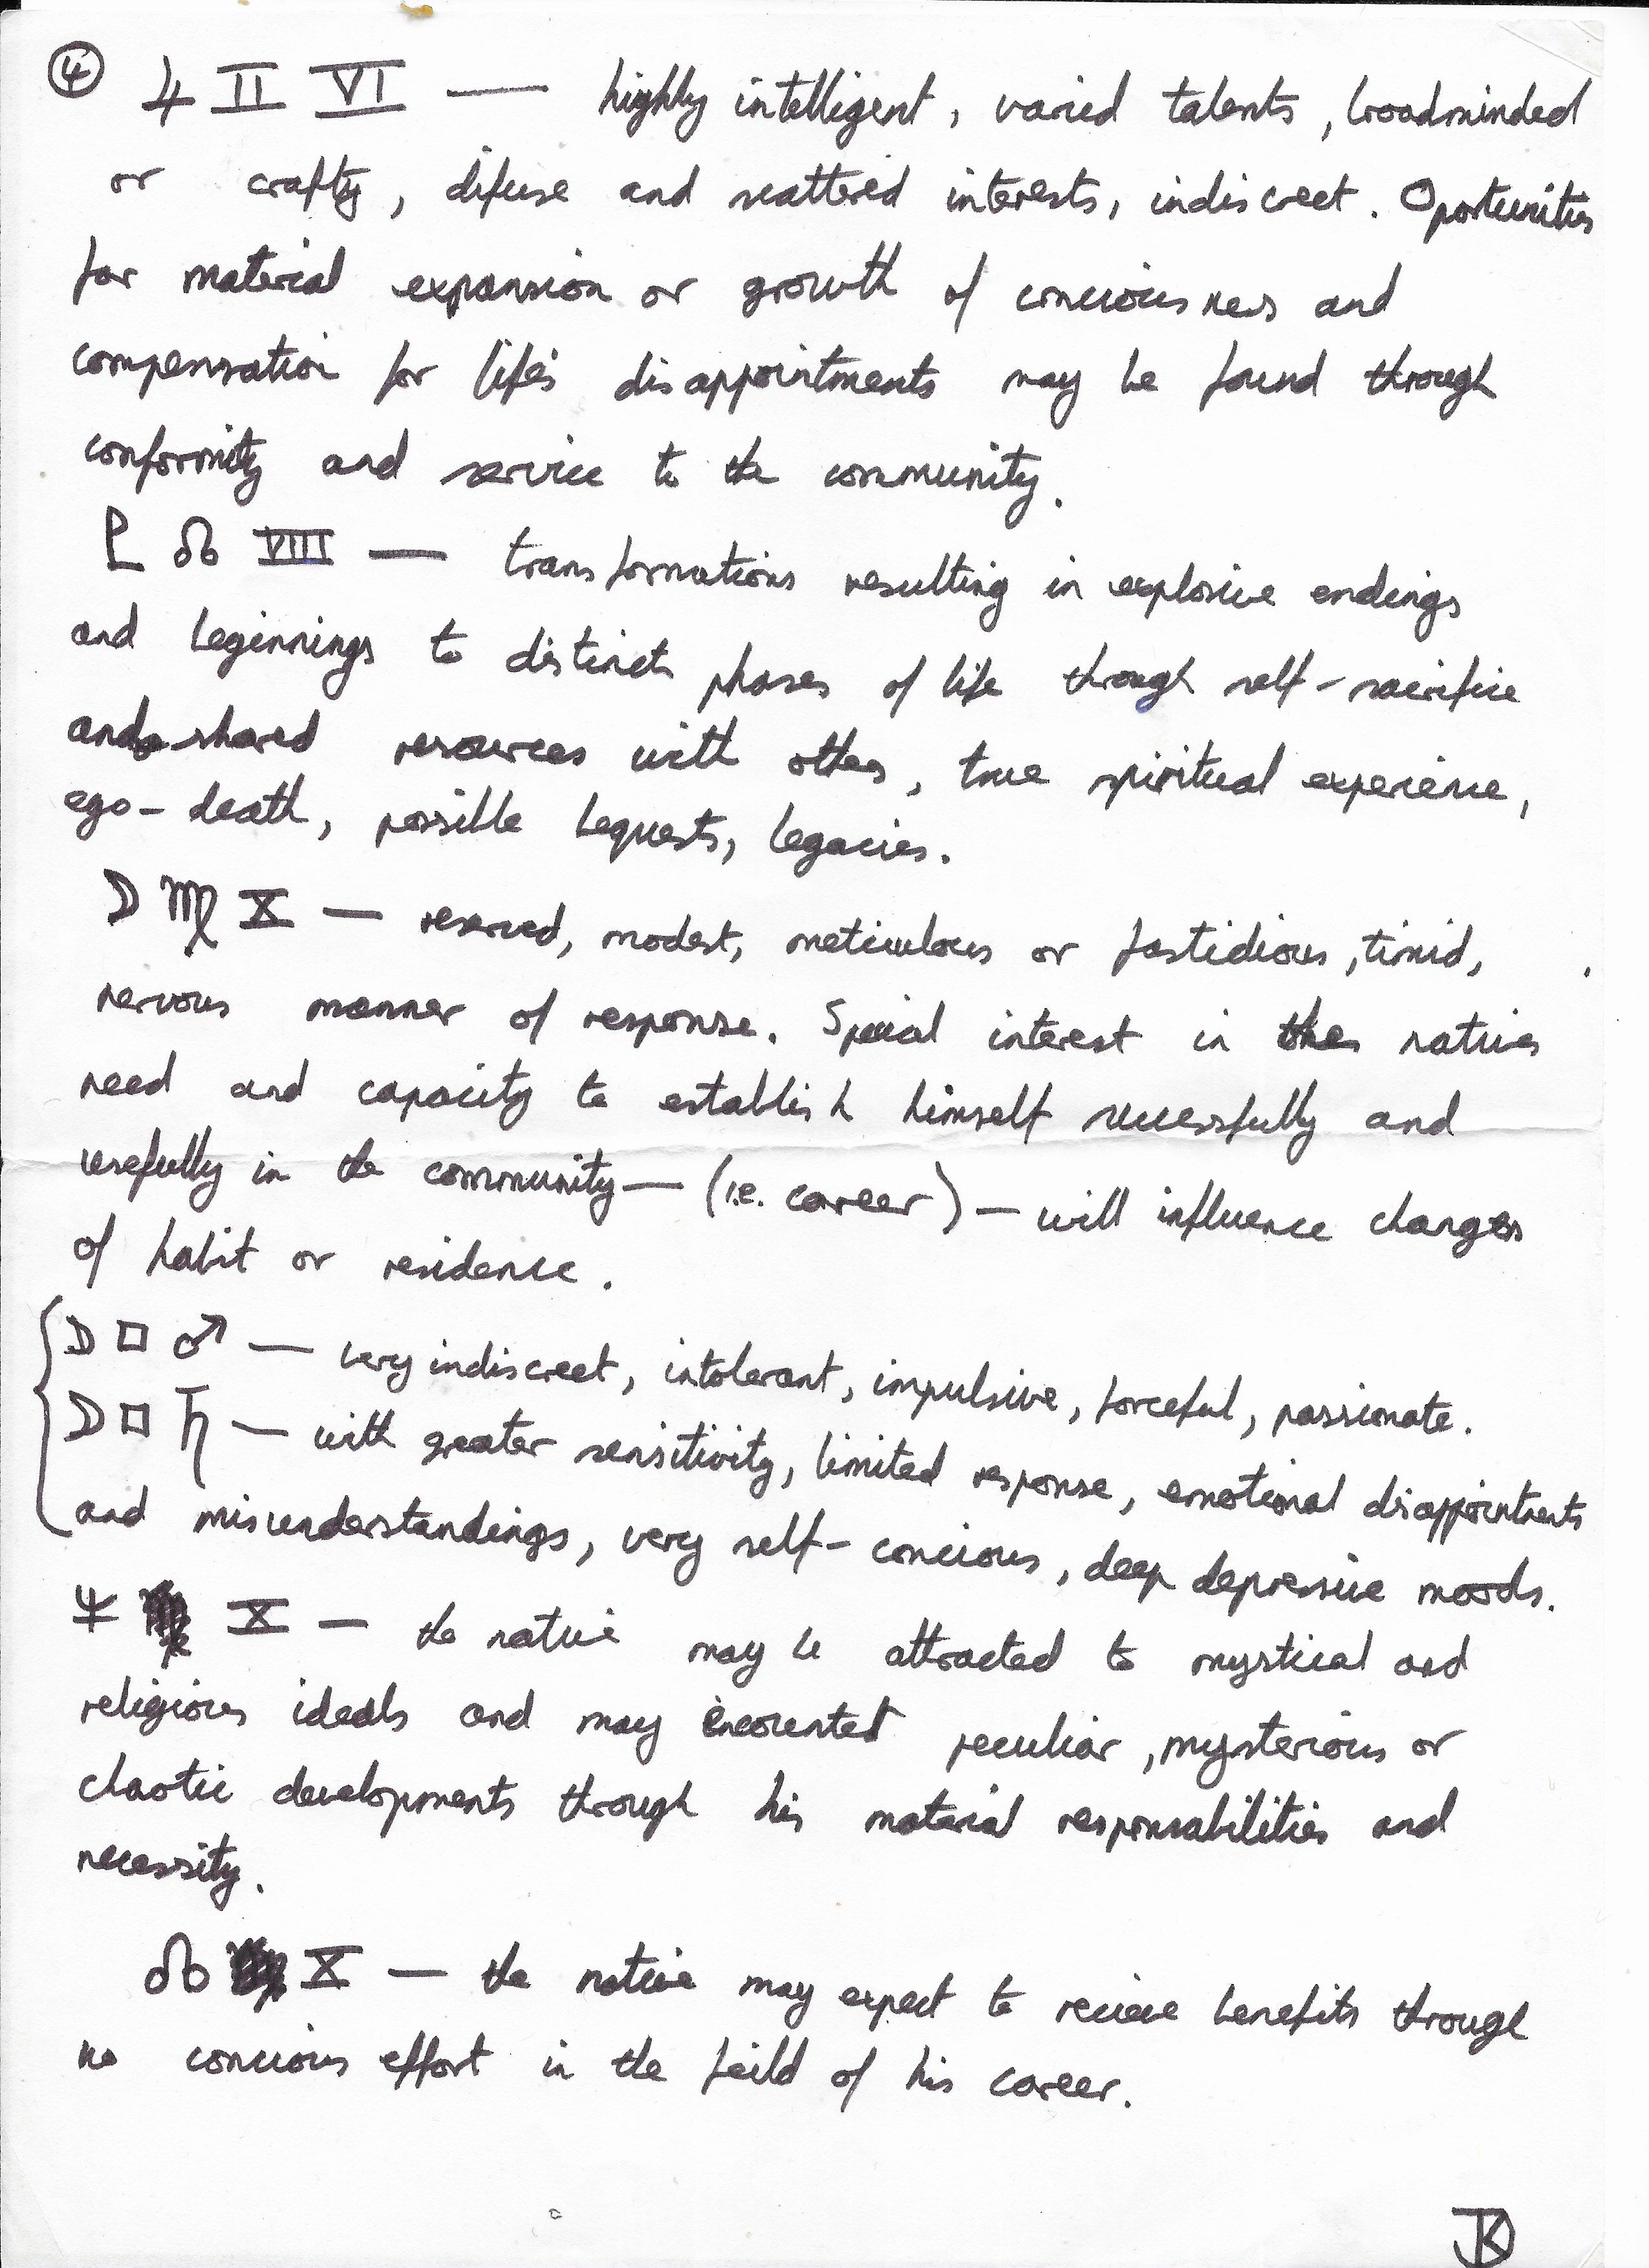 ④ ♃ ♊ VI — highly intelligent, varied talents, broadminded
or crafty, difuse and scattered interests, indiscreet. Oportunities
for material expansion or growth of conciousness and
compensation for life's disappointments may be found through
conformity and service to the community.
♇ ♌ VIII — transformations resulting in explosive endings
and beginnings to distinct phases of life through self-sacrifice
and shared resources with others, true spiritual experience,
ego-death, possible bequests, legacies.
☽ ♍ X — reserved, modest, meticulous or fastidious, timid,
nervous manner of response. Special interest in the natives
need and capacity to establish himself successfully and
usefully in the community — (i.e. career) — will influence changes
of habit or residence.
☽ □ ♂ — very indiscreet, intolerant, impulsive, forceful, passionate.
☽ □ ♄ — with greater sensitivity, limited response, emotional disappointments
and misunderstandings, very self-concious, deep depressive moods.
♆ X — the native may be attracted to mystical and
religious ideals and may encounted peculiar, mysterious or
chaotic developments through his material responsabilities and
necessity.
☊ X — the native may expect to recieve benefits through
no concious effort in the feild of his career.
JK